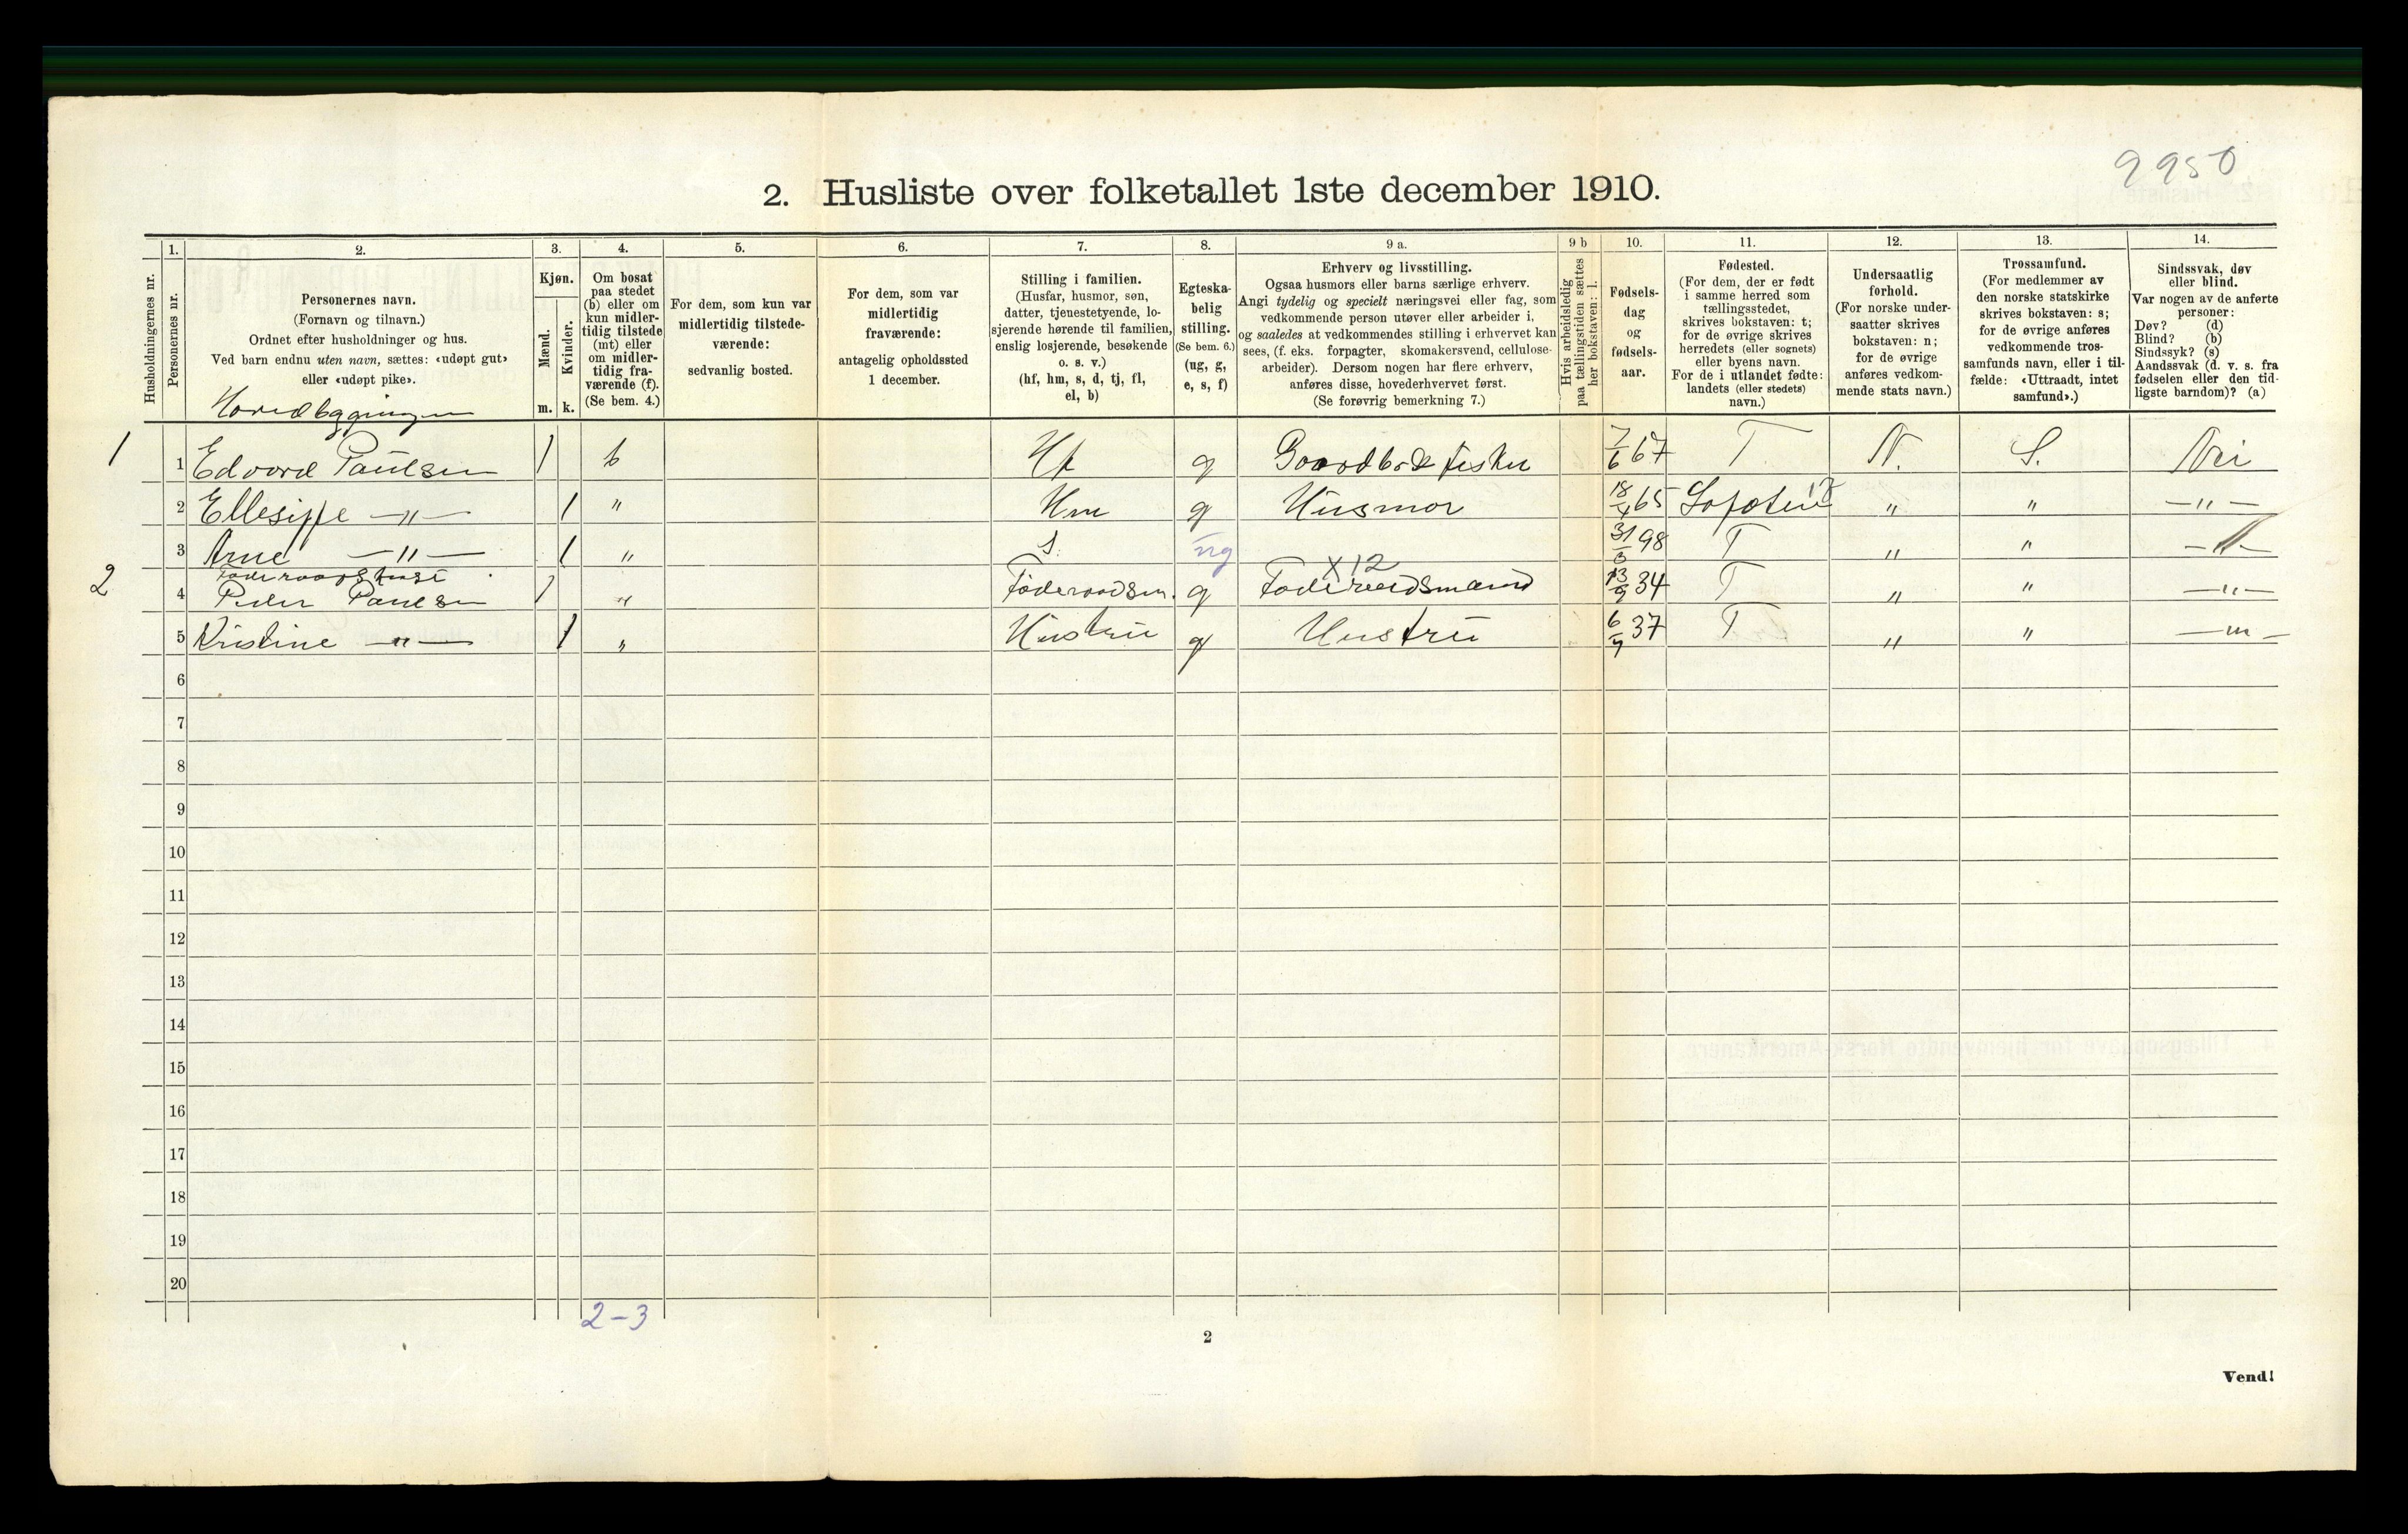 9950
2. Husliste over folketallet 1ste december 1910.
Husholdningernes nr.
1.
Personernes nr.
2.
Personernes navn.
(Fornavn og tilnavn.)
Ordnet efter husholdninger og hus.
Ved barn endnu uten navn, sættes: «udøpt gut»
eller «udøpt pike».
Hovedbygningen
3.
Kjøn.
Mænd.
Kvinder.
m. k.
4.
Om bosat
paa stedet
(b) eller om
kun midler-
tidig tilstede
(mt) eller
om midler-
tidig fra-
værende (f).
(Se bem. 4.)
5.
For dem, som kun var
midlertidig tilstede-
værende:
sedvanlig bosted.
6.
For dem, som var
midlertidig
fraværende:
antagelig opholdssted
1 december.
7.
Stilling i familien.
(Husfar, husmor, søn,
datter, tjenestetyende, lo-
sjerende hørende til familien,
enslig losjerende, besøkende
o. s. v.)
(hf, hm, s, d, tj, fl,
el, b)
8.
Egteska-
belig
stilling.
(Se bem. 6.)
(ug, g,
e, s, f)
9 a.
Erhverv og livsstilling.
Ogsaa husmors eller barns særlige erhverv.
Angi tydelig og specielt næringsvei eller fag, som
vedkommende person utøver eller arbeider i,
og saaledes at vedkommendes stilling i erhvervet kan
sees, (f. eks. forpagter, skomakersvend, cellulose-
arbeider). Dersom nogen har flere erhverv,
anføres disse, hovederhvervet først.
(Se forøvrig bemerkning 7.)
9 b
Hvis arbeidsledig
paa tællingstiden sættes
her bokstaven: l.
10.
Fødsels-
dag
og
fødsels-
aar.
11.
Fødested.
(For dem, der er født
i samme herred som
tællingsstedet,
skrives bokstaven: t;
for de øvrige skrives
herredets (eller sognets)
eller byens navn.
For de i utlandet fødte:
landets (eller stedets)
navn.)
12.
Undersaatlig
forhold.
(For norske under-
saatter skrives
bokstaven: n;
for de øvrige
anføres vedkom-
mende stats navn.)
13.
Trossamfund.
(For medlemmer av
den norske statskirke
skrives bokstaven: s;
for de øvrige anføres
vedkommende tros-
samfunds navn, eller i til-
fælde: «Uttraadt, intet
samfund».)
14.
Sindssvak, døv
eller blind.
Var nogen av de anførte
personer:
Døv? (d)
Blind? (b)
Sindssyk? (s)
Aandssvak (d. v. s. fra
fødselen eller den tid-
ligste barndom)? (a)
1 1 Edvard Paulsen 1 b Hf g Gaardbr & fisker 7/6 67 T N. S. Nei
2 Ellesiffe —"— 1 " Hm g Husmor 18/4 65 Lofoten 18 " " —"—
3 Arne —"— 1 " S. ug 31/3 98 T " " —"—
x 12
Føderaadshuset
2 4 Peder Paulsen 1 " Føderaadsm. g Føderaadsmand 13/9 34 T " " —"—
5 Kristine —"— 1 " Hustru g Hustru 6/9 37 T " " —"—
6
7
8
9
10
11
12
13
14
15
16
17
18
19
20
2-3
2
Vend!